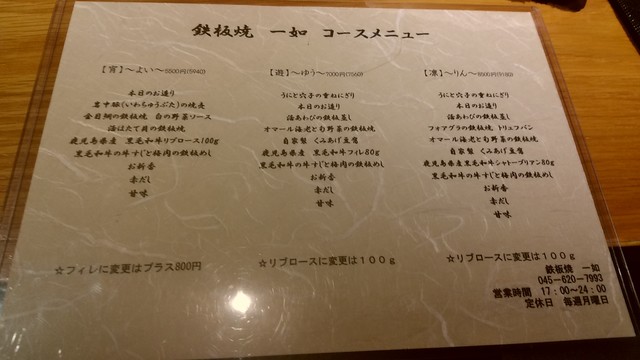 鉄板焼　一如　コースメニュー
【宵】～よい～5500円(5940)
本日のお造り
岩中豚(いわちゅうぶた)の焼売
金目鯛の鉄板焼　白の野菜ソース
活ほたて貝の鉄板焼
鹿児島県産　黒毛和牛リブロース100g
黒毛和牛の牛すじと梅肉の鉄板めし
お新香
赤だし
甘味
☆フィレに変更はプラス800円
【遊】～ゆう～7000円(7560)
うにと穴子の重ねにぎり
本日のお造り
活あわびの鉄板蒸し
オマール海老と旬野菜の鉄板焼
自家製　くみあげ豆腐
鹿児島県産　黒毛和牛フィレ80g
黒毛和牛の牛すじと梅肉の鉄板めし
お新香
赤だし
甘味
☆リブロースに変更は１００ｇ
【凛】～りん～8500円(9180)
うにと穴子の重ねにぎり
本日のお造り
活あわびの鉄板蒸し
フォアグラの鉄板焼　トリュフパン
オマール海老と旬野菜の鉄板焼
自家製　くみあげ豆腐
鹿児島県産　黒毛和牛シャトーブリアン80g
黒毛和牛の牛すじと梅肉の鉄板めし
お新香
赤だし
甘味
☆リブロースに変更は１００ｇ
鉄板焼　一如
045-620-7993
営業時間　17：00～24：00
定休日　毎週月曜日